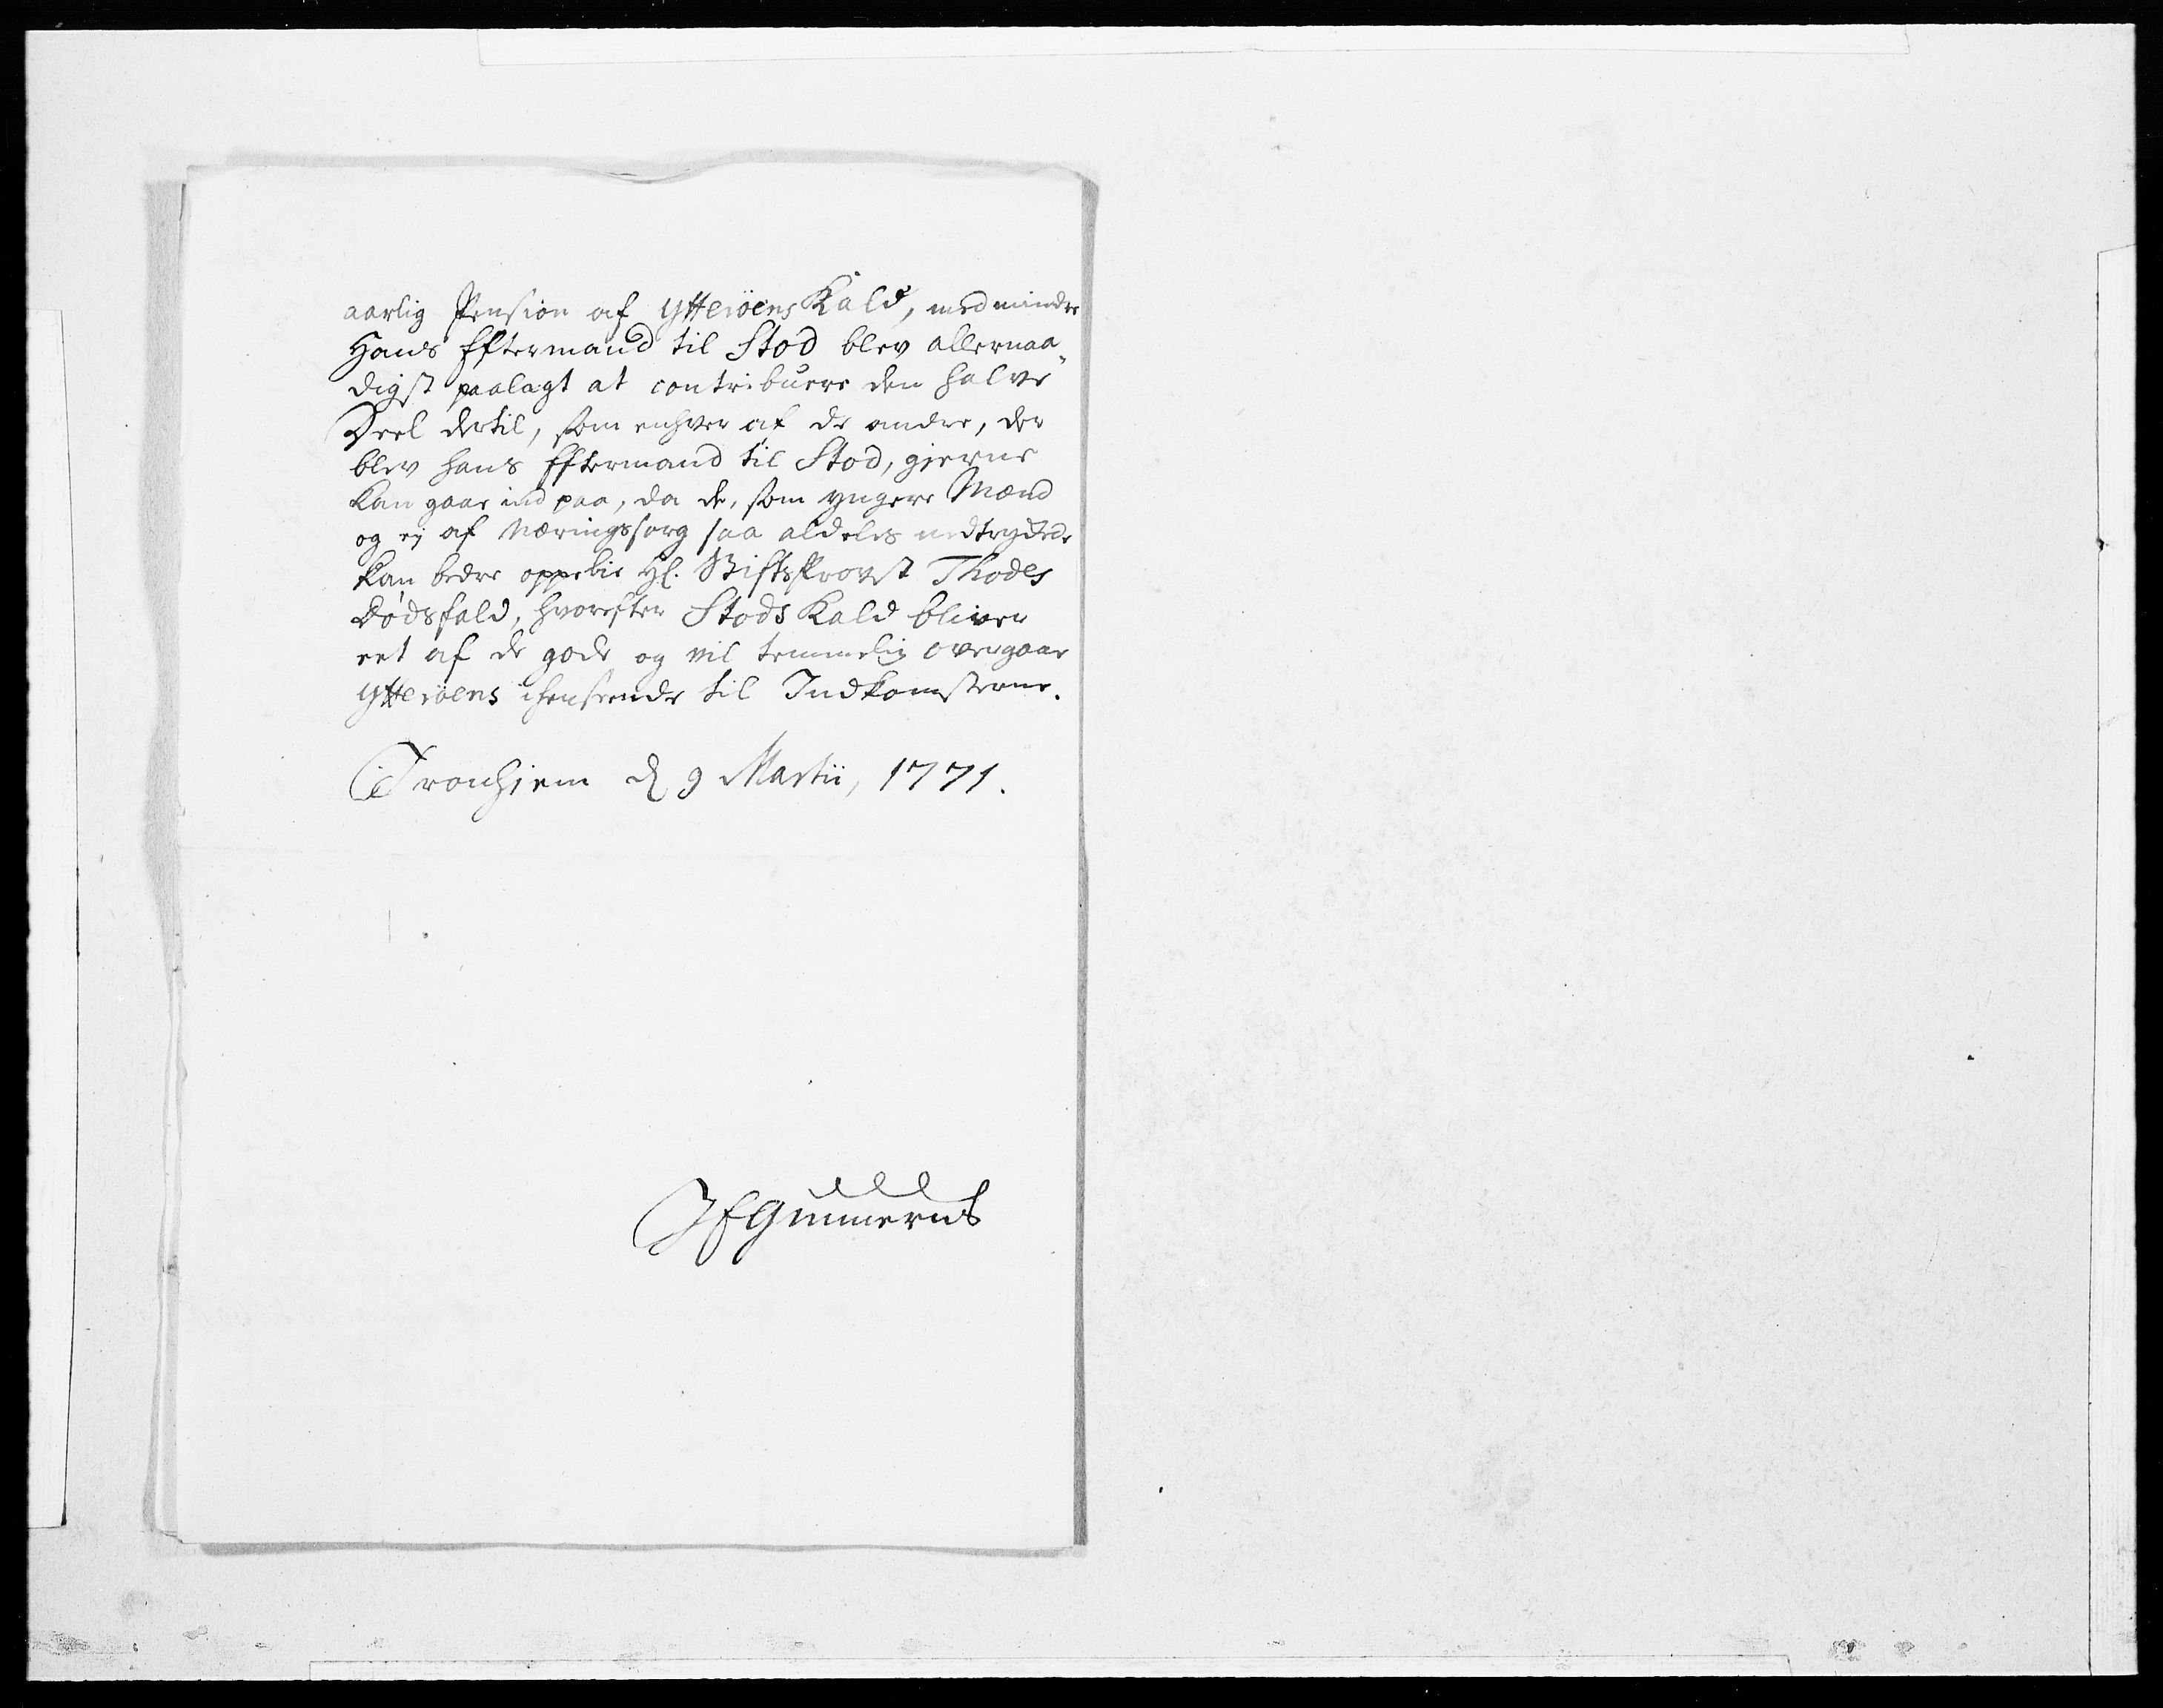 aarlig Pension af Ytterøens Kald, med mindre
Hans Eftermand til Stod blev allernaa„
digst paalagt at contribuere den halve
Deel dertil, som enhver af de andre, der
blev hans Eftermand til Stod, gierne
kan gaae ind paa, da de, som yngere Mænd
og ej af Næringssorg saa aldeles nedtrykte
kan bedre oppebie Hl. StiftsProvst Thodes
Dødsfald, hvorefter Stods Kald bliver
eet af de gode og vil temmelig overgaae
Ytterøens ihenseende til Indkomsterne.
Tronhiem d 9 Martii, 1771.
JEGunnerus